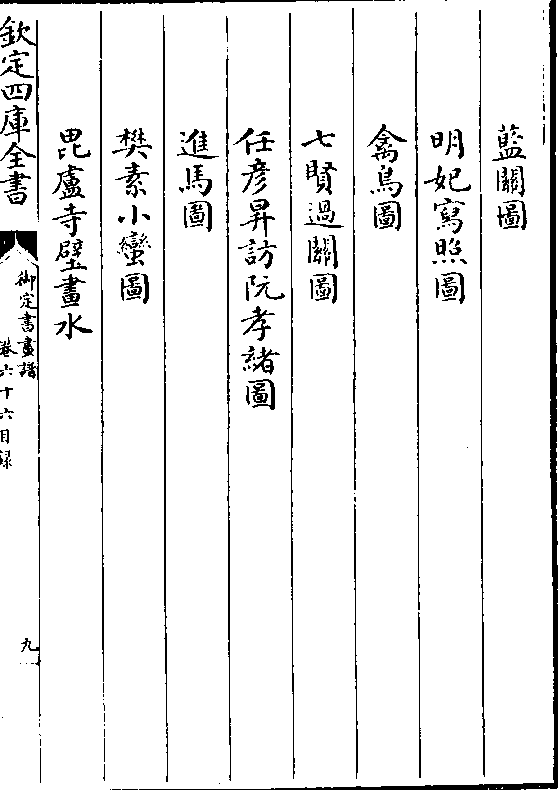 藍關圖
明妃寫照圖
禽鳥圖
七賢過關圖
任彥昇訪阮孝緒圖
進馬圖
樊素小蠻圖
毘盧寺壁畫水
欽定四庫全書
御定書畫譜
卷六十六目録
九